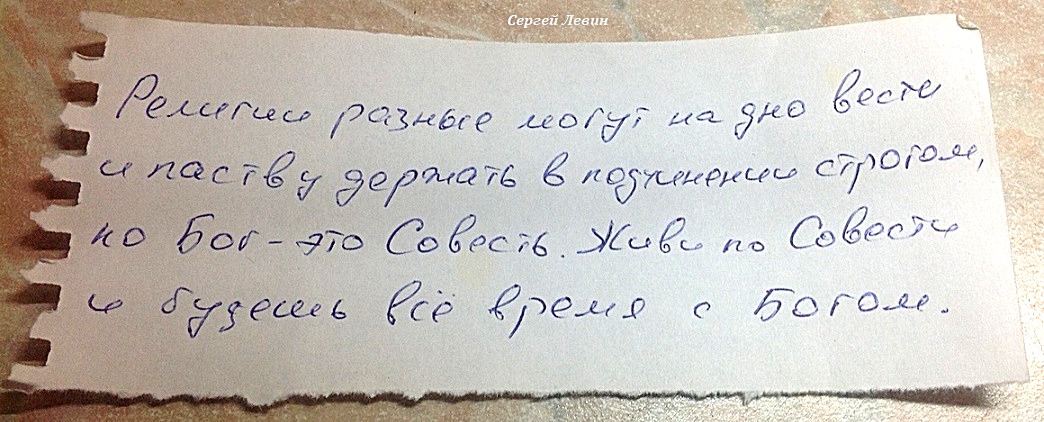 Сергей Левин
Религии разные могут на дно вести
и паству держать в подчинении строгом,
но Бог - это Совесть. Живи по Совести
и будешь всё время с Богом.